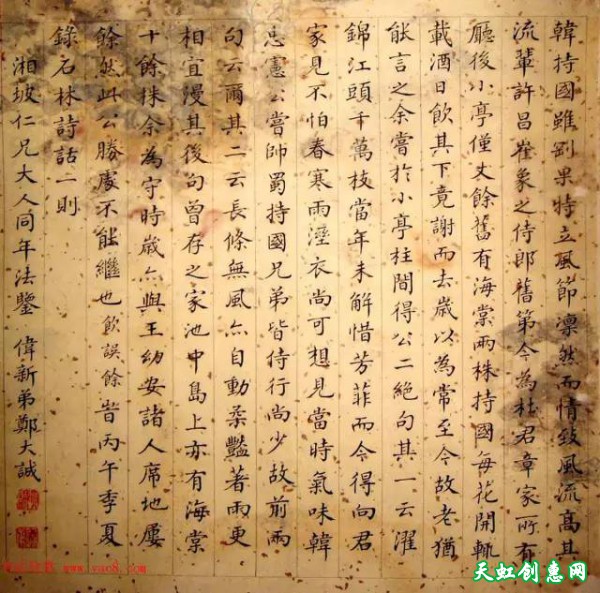 韓持國雖剛果特立風節凛然而情致風流高其
流輩許昌崔象之侍郎舊第今為杜君章家所有
廳後小亭僅丈餘舊有海棠兩株持國每花開輒
載酒日飲其下竟謝而去歲以為常至今故老猶
能言之余嘗於小亭柱間得公二絕句其一云濯
錦江頭千萬枝當年未解惜芳菲而今得向君
家見不怕春寒雨溼衣尚可想見當時氣味韓
忠憲公嘗帥蜀持國兄弟皆侍行尚少故前兩
句云爾其二云長條無風亦自動柔豔著雨更
相宜漫其後句曾存之家池中島上亦有海棠
十餘株余為守時歲亦與王幼安諸人席地屢
餘然此公勝處不能繼也飲誤餘旹丙午季夏
錄石林詩話二則
湘坡仁兄大人同年法鑒 偉新弟鄭大誠
天虹创惠网